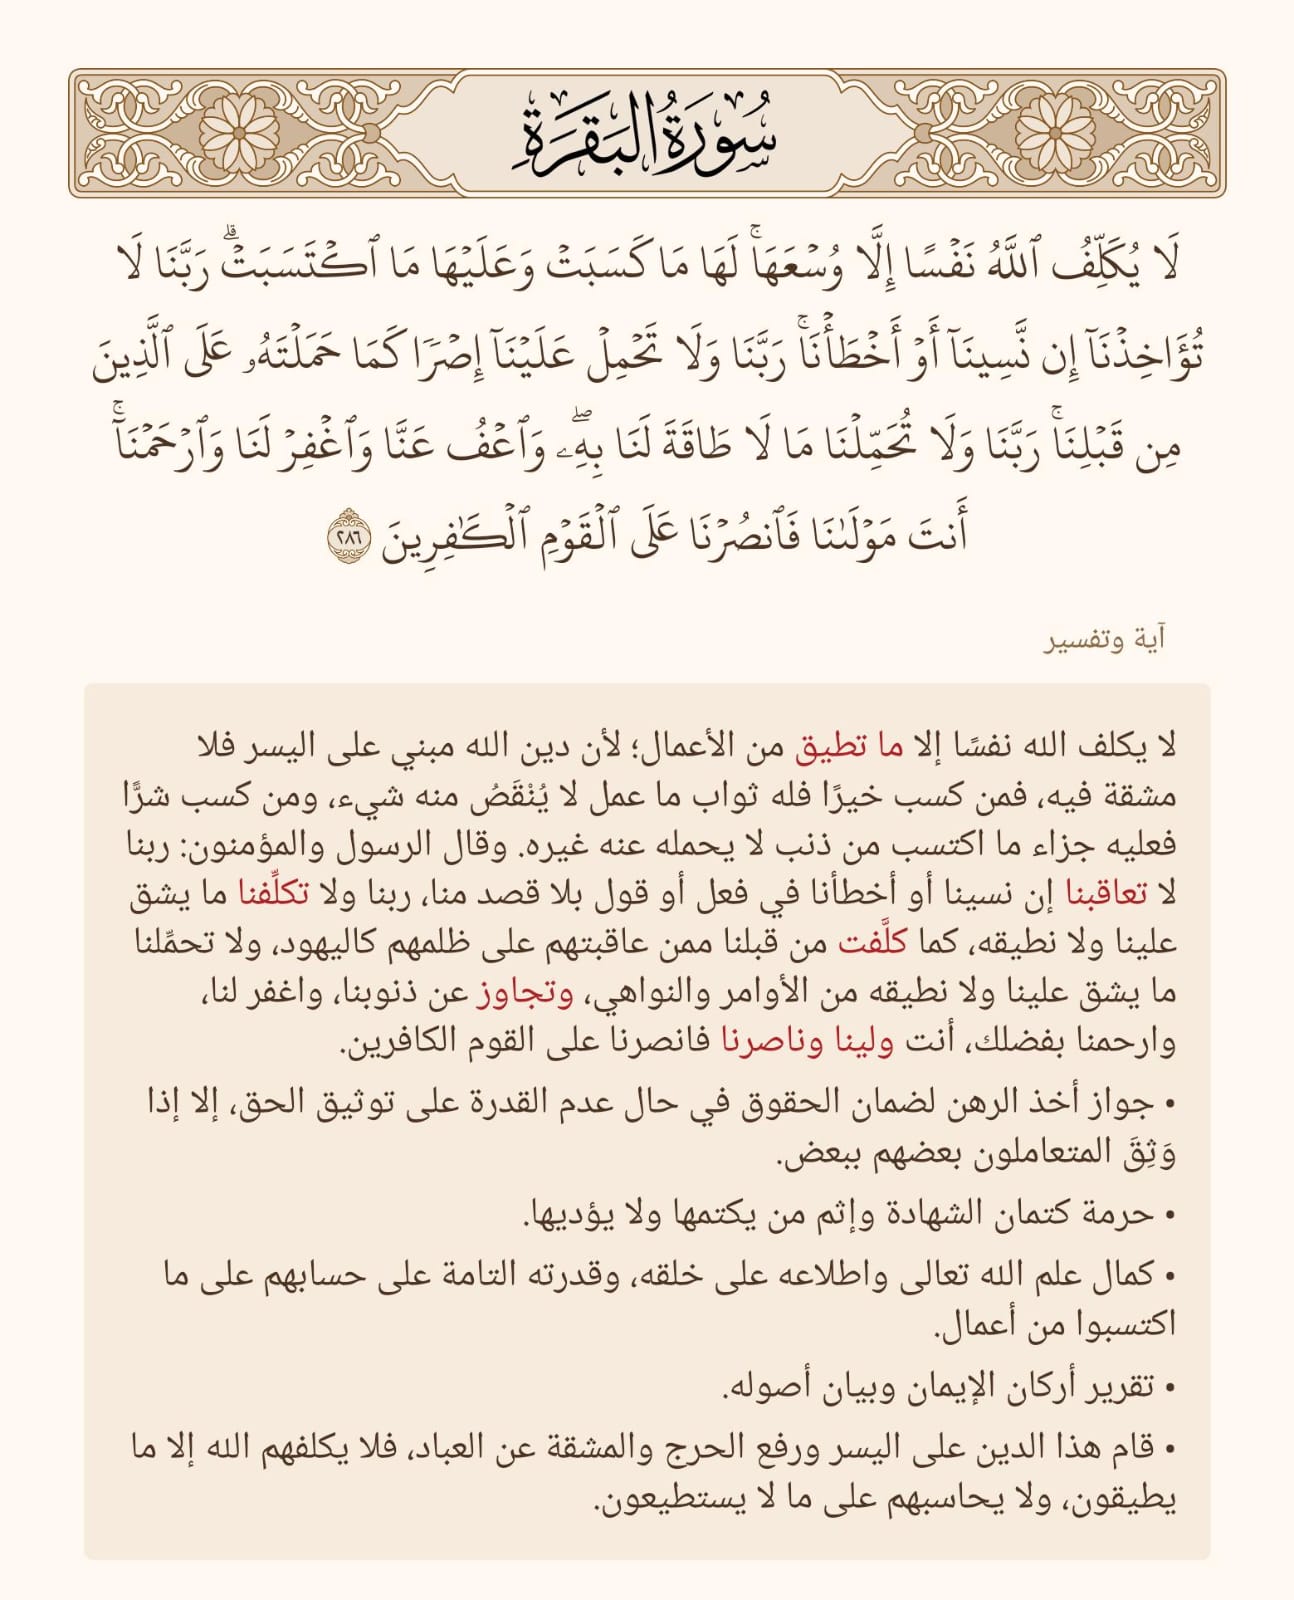 سُورَةُ البَقَرَةِ
لَا يُكَلِّفُ ٱللَّهُ نَفۡسًا إِلَّا وُسۡعَهَاۚ لَهَا مَا كَسَبَتۡ وَعَلَيۡهَا مَا ٱكۡتَسَبَتۡۗ رَبَّنَا لَا
تُؤَاخِذۡنَآ إِن نَّسِينَآ أَوۡ أَخۡطَأۡنَاۚ رَبَّنَا وَلَا تَحۡمِلۡ عَلَيۡنَآ إِصۡرٗا كَمَا حَمَلۡتَهُۥ عَلَى ٱلَّذِينَ
مِن قَبۡلِنَاۚ رَبَّنَا وَلَا تُحَمِّلۡنَا مَا لَا طَاقَةَ لَنَا بِهِۦۖ وَٱعۡفُ عَنَّا وَٱغۡفِرۡ لَنَا وَٱرۡحَمۡنَآۚ
أَنتَ مَوۡلَىٰنَا فَٱنصُرۡنَا عَلَى ٱلۡقَوۡمِ ٱلۡكَٰفِرِينَ ٢٨٦
آية وتفسير
لا يكلف الله نفسًا إلا ما تطيق من الأعمال؛ لأن دين الله مبني على اليسر فلا
مشقة فيه، فمن كسب خيرًا فله ثواب ما عمل لا يُنْقَصُ منه شيء، ومن كسب شرًّا
فعليه جزاء ما اكتسب من ذنب لا يحمله عنه غيره. وقال الرسول والمؤمنون: ربنا
لا تعاقبنا إن نسينا أو أخطأنا في فعل أو قول بلا قصد منا، ربنا ولا تكلِّفنا ما يشق
علينا ولا نطيقه، كما كلَّفت من قبلنا ممن عاقبتهم على ظلمهم كاليهود، ولا تحمِّلنا
ما يشق علينا ولا نطيقه من الأوامر والنواهي، وتجاوز عن ذنوبنا، واغفر لنا،
وارحمنا بفضلك، أنت ولينا وناصرنا فانصرنا على القوم الكافرين.
• جواز أخذ الرهن لضمان الحقوق في حال عدم القدرة على توثيق الحق، إلا إذا
وَثِقَ المتعاملون بعضهم ببعض.
• حرمة كتمان الشهادة وإثم من يكتمها ولا يؤديها.
• كمال علم الله تعالى واطلاعه على خلقه، وقدرته التامة على حسابهم على ما
اكتسبوا من أعمال.
• تقرير أركان الإيمان وبيان أصوله.
• قام هذا الدين على اليسر ورفع الحرج والمشقة عن العباد، فلا يكلفهم الله إلا ما
يطيقون، ولا يحاسبهم على ما لا يستطيعون.